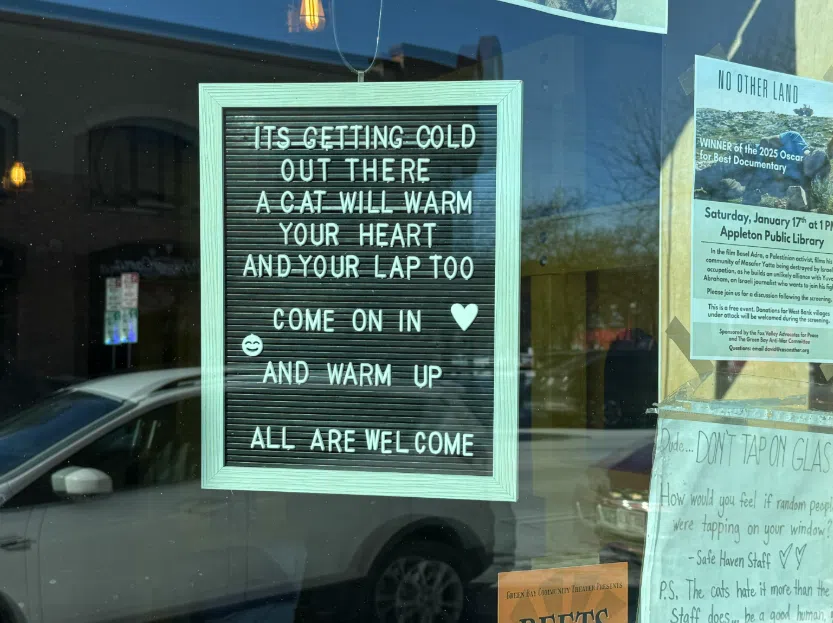 ITS GETTING COLD
OUT THERE
A CAT WILL WARM
YOUR HEART
AND YOUR LAP TOO
COME ON IN
AND WARM UP
ALL ARE WELCOME
NO OTHER LAND
WINNER of the 2025 Oscar
for Best Documentary
Saturday, January 17th at 1 PM
Appleton Public Library
In the film Basel Adra, a Palestinian activist, films his
community of Masafer Yatta being destroyed by Israel
occupation, as he builds an unlikely alliance with Yuv
Abraham, an Israeli journalist who wants to join his fig
Please join us for a discussion following the screening
This is a free event. Donations for West Bank villages
under attack will be welcomed during the screening.
Sponsored by the Fox Valley Advocates for Peace
and The Green Bay Anti-War Committee
Questions: email
Dude... DON'T TAP ON GLAS
How would you feel if random people
were tapping on your window?
- Safe Haven Staff
P.S. The cats hate it more than the
Staff does... be a good human,
GREEN BAY COMMUNITY THEATER PRESENTS
BEETS